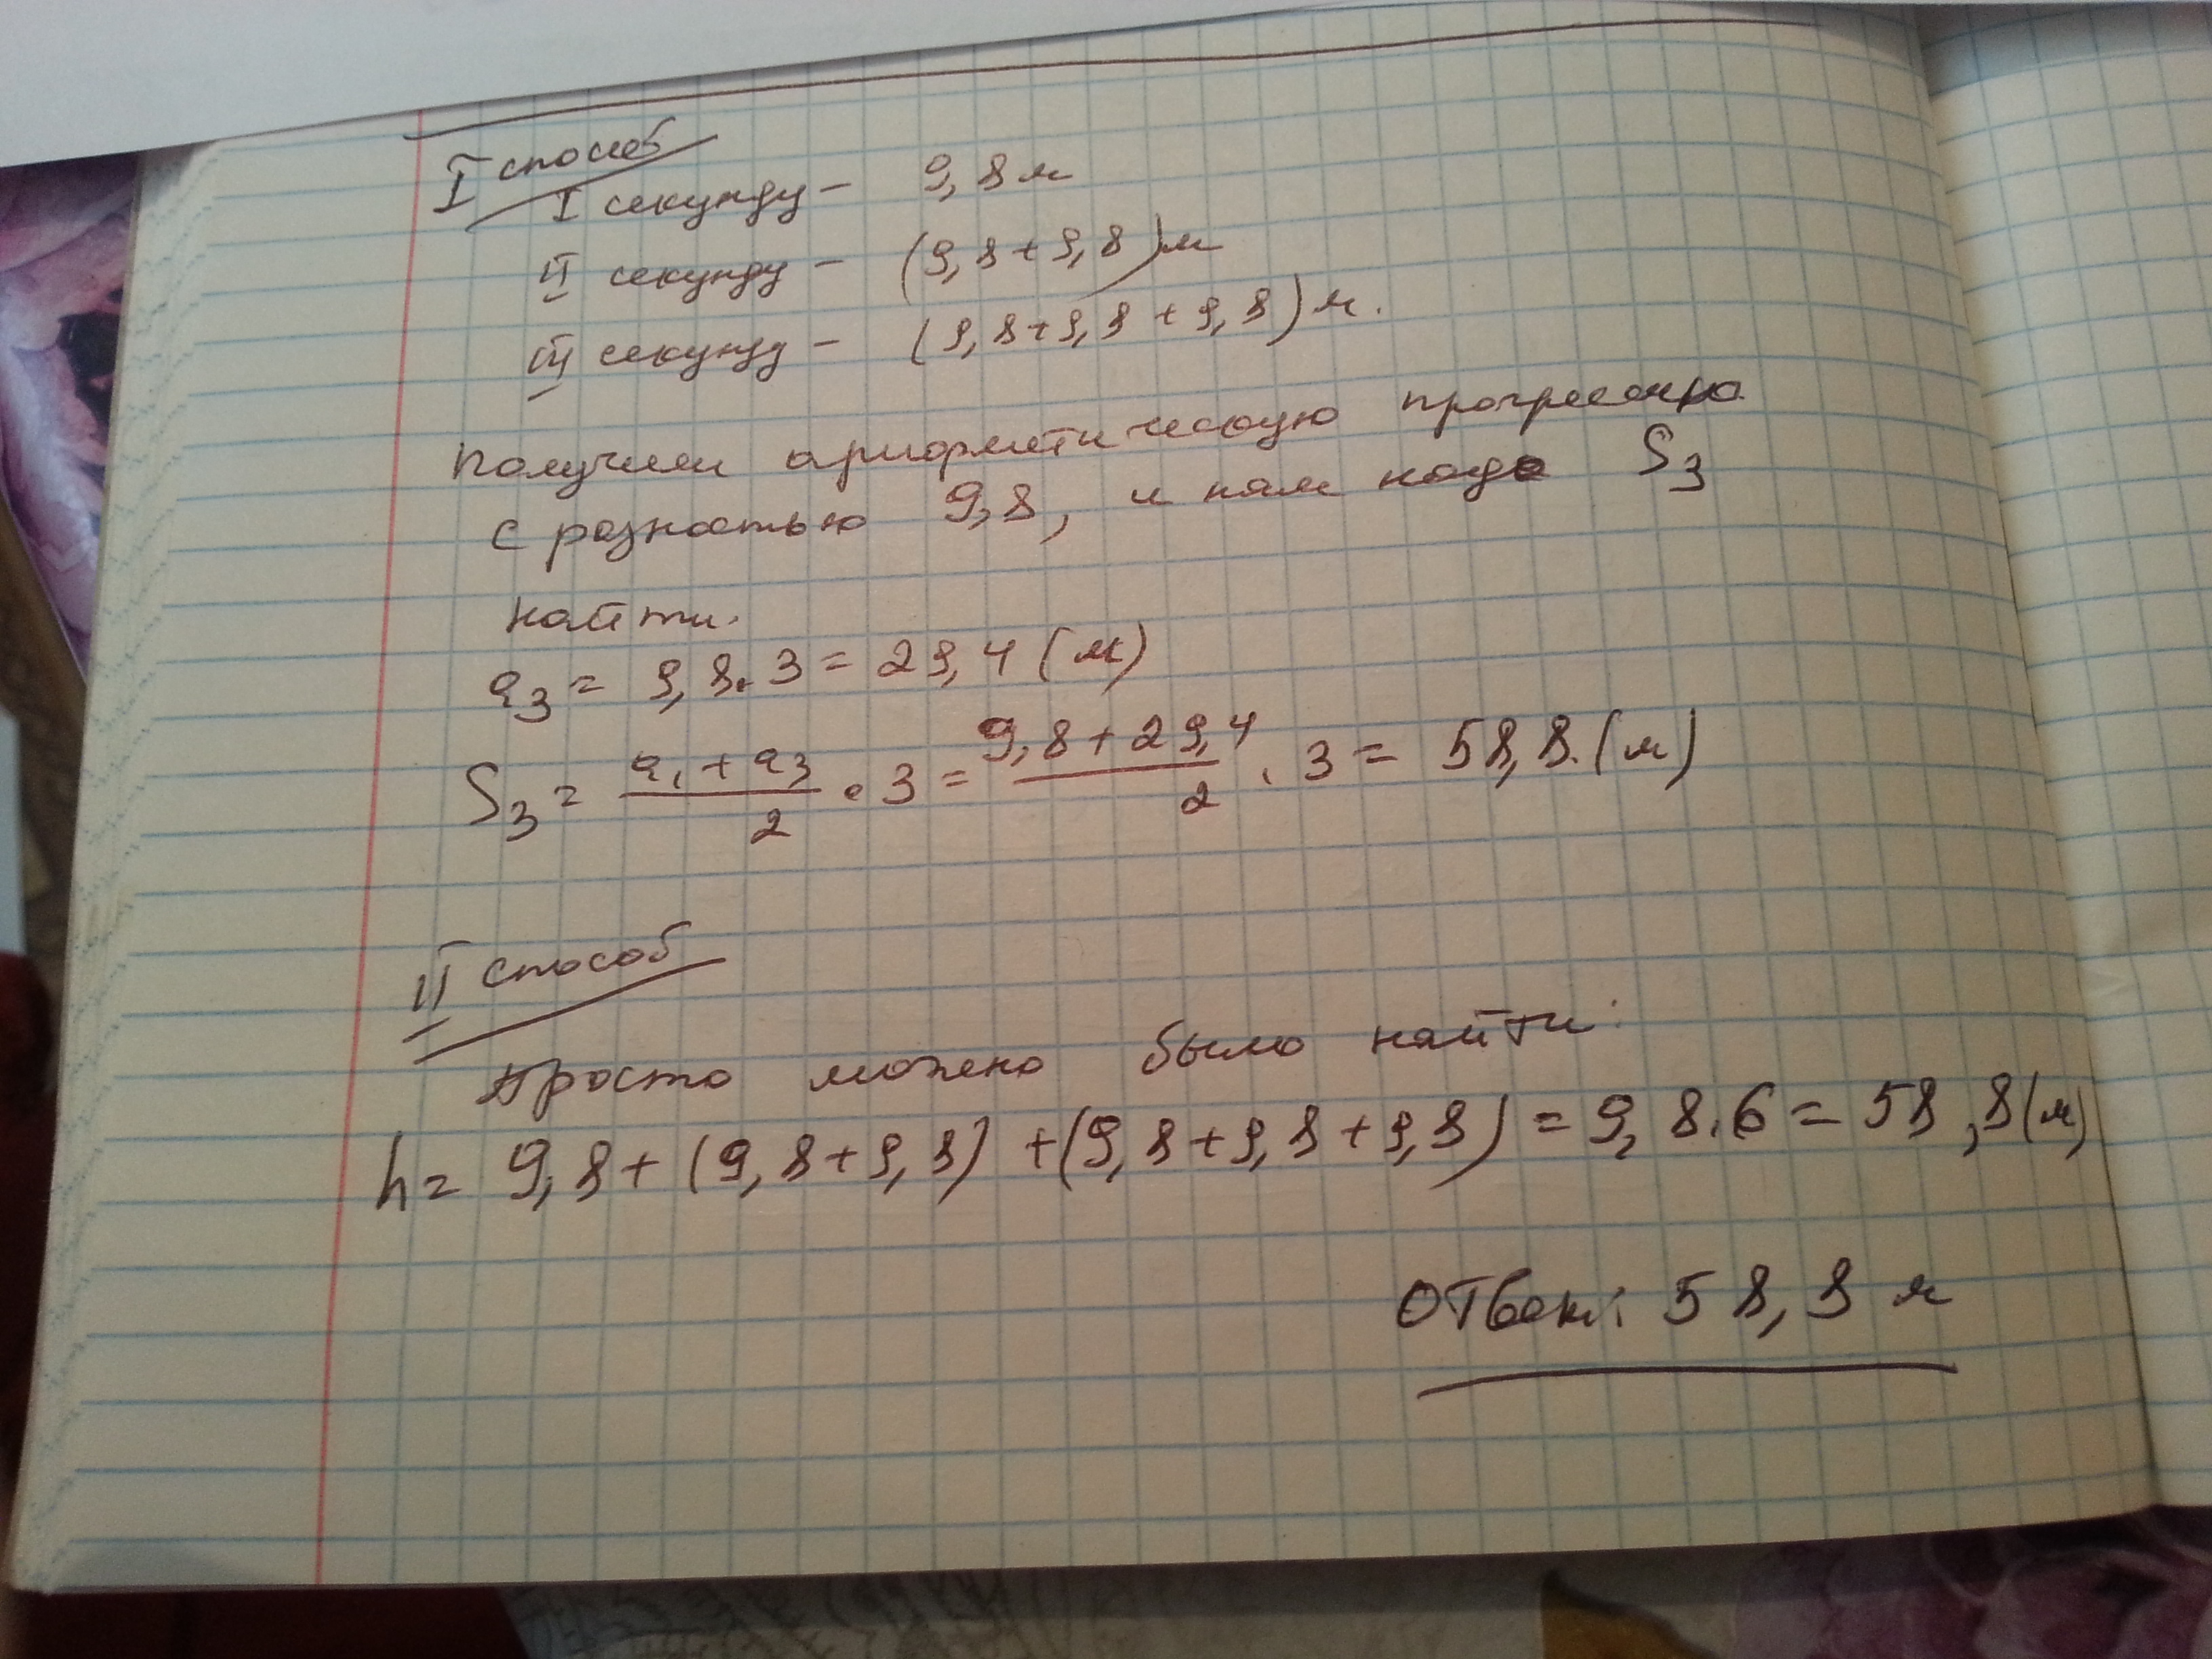 I способ
I секунду - 9,8 м
II секунду - (9,8+9,8) м
III секунду - (9,8+9,8+9,8) м.
Получим арифметическую прогрессию
с разностью 9,8, и нам надо S₃
найти.
a₃ = 9,8·3 = 29,4 (м)
S₃ = (a₁+a₃)/2 · 3 = (9,8+29,4)/2 · 3 = 58,8 (м)
II способ
Просто можно было найти:
h = 9,8+(9,8+9,8)+(9,8+9,8+9,8) = 9,8·6 = 58,8 (м)
Ответ: 58,8 м